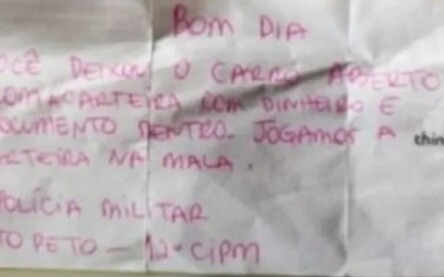 BOM DIA
OCÊ DEIXOU O CARRO ABERTO
COM A CARTEIRA COM DINHEIRO E
OCUMENTO DENTRO. JOGAMOS A
thin
RTEIRA NA MALA.
POLÍCIA MILITAR
TO PETO - 12ª CIPM